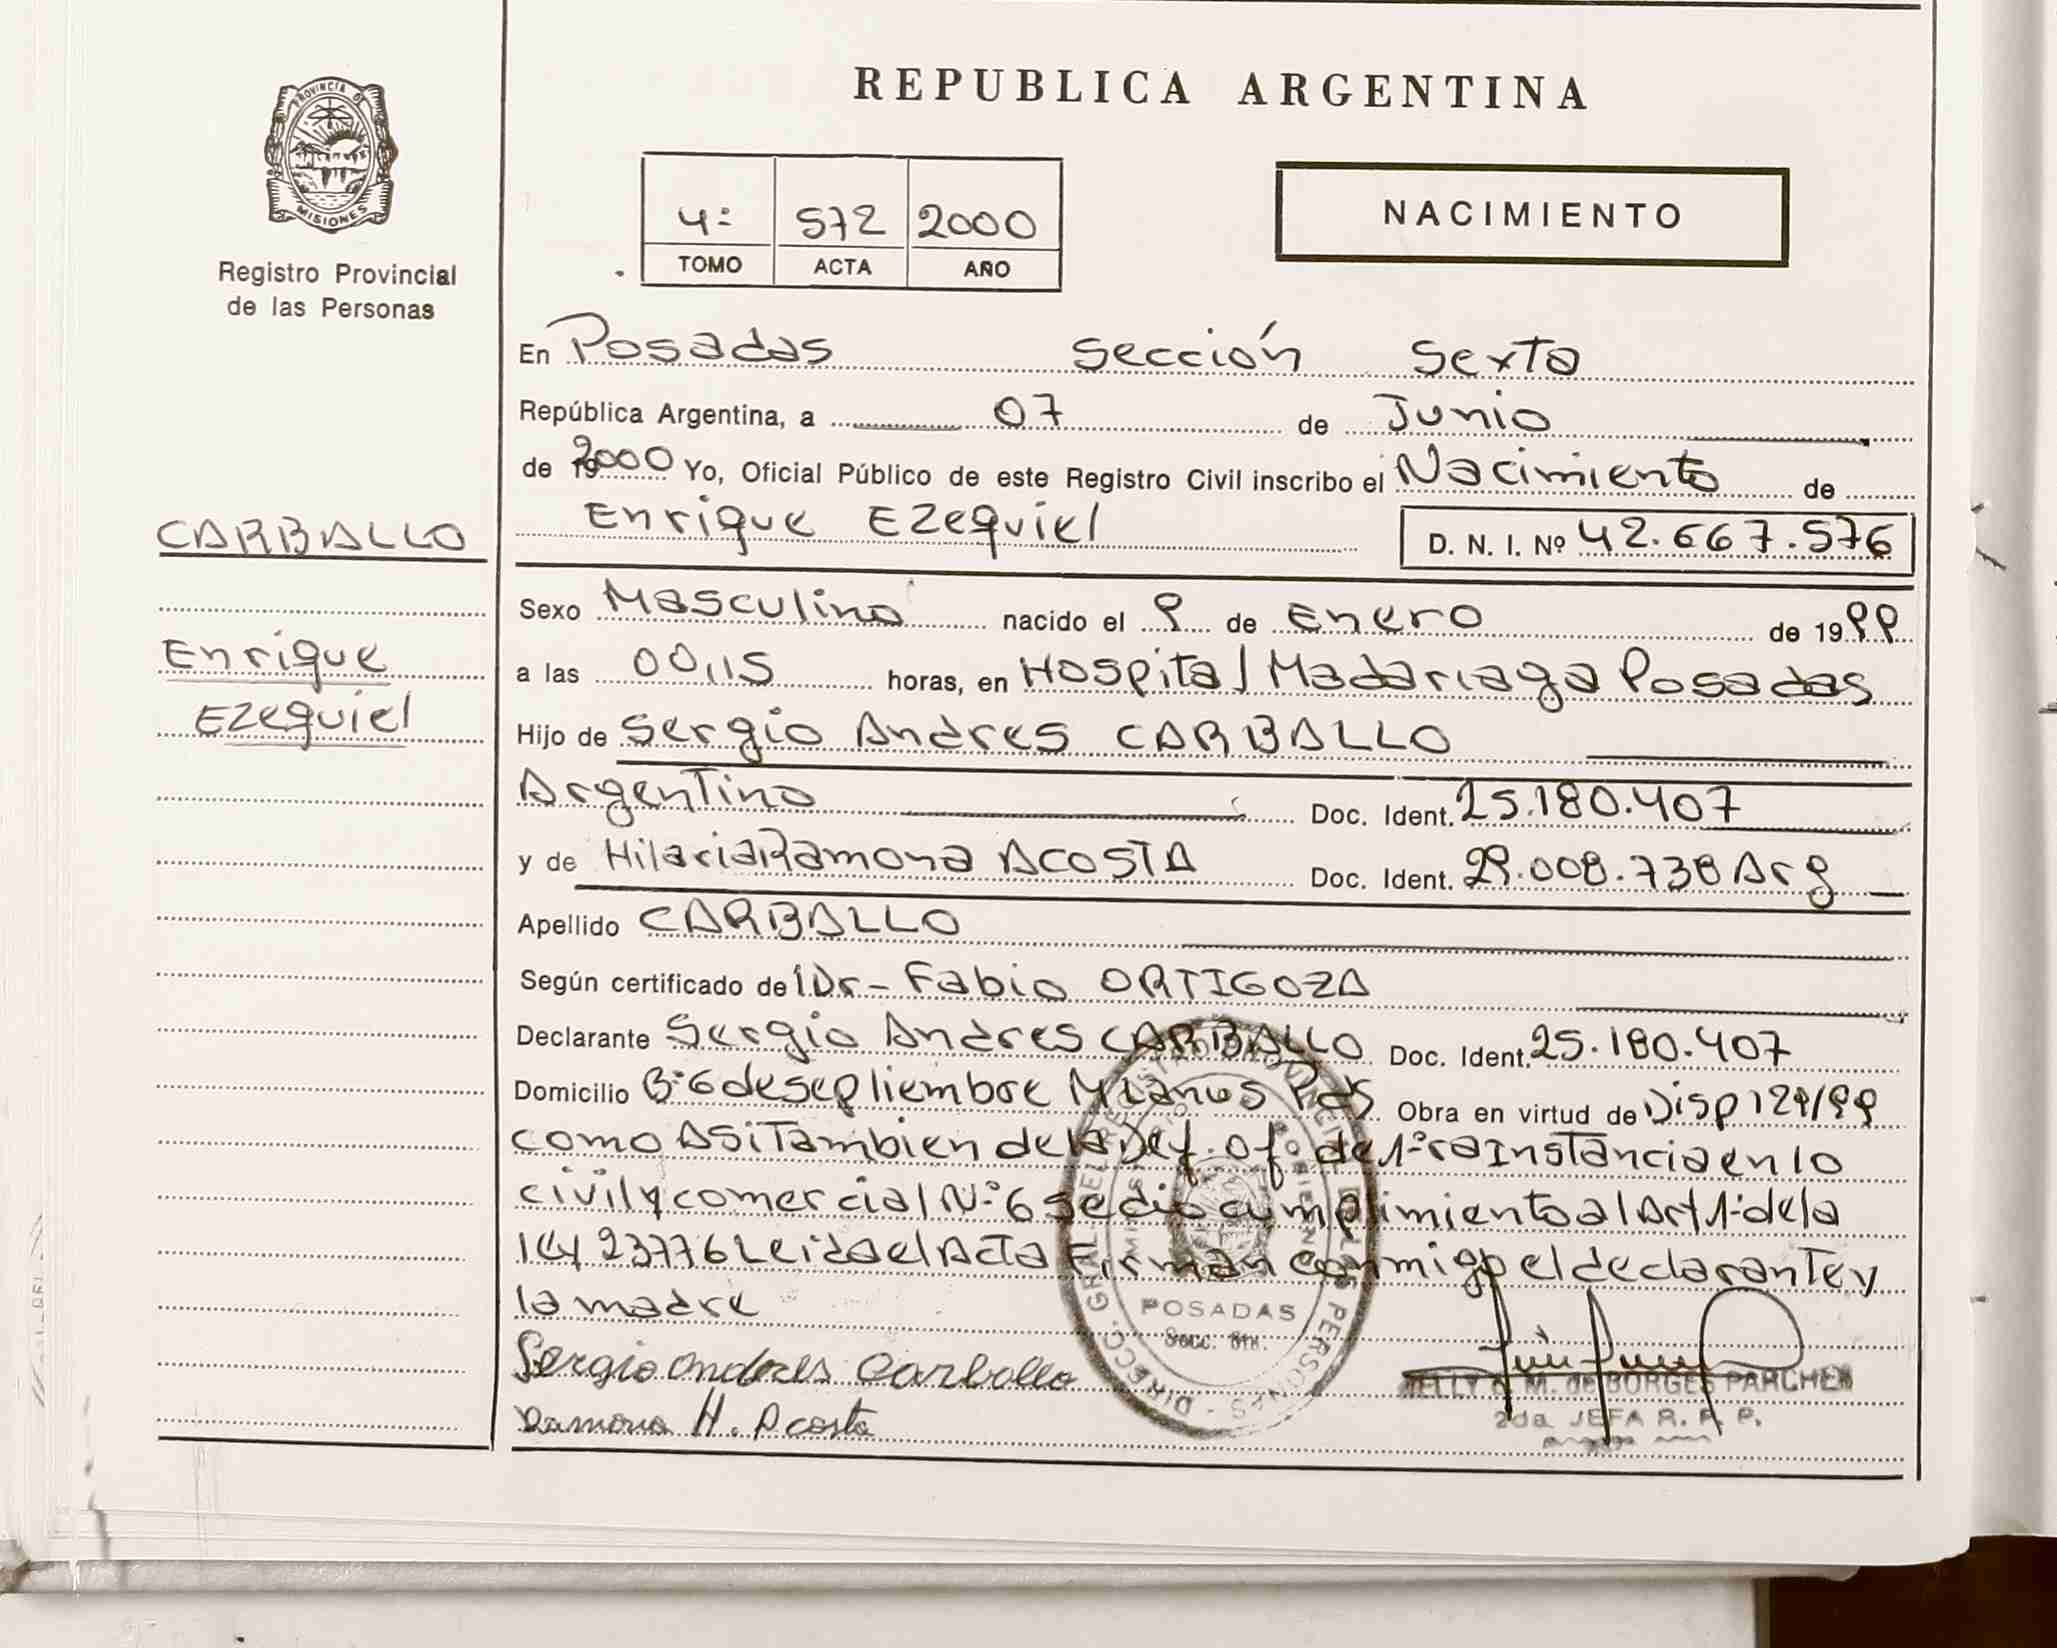 PROVINCIA DE
MISIONES
Registro Provincial
de las Personas
CARBALLO
Enrique
Ezequiel
REPUBLICA ARGENTINA
4º 572 2000
TOMO ACTA AÑO
NACIMIENTO
En Posadas Sección Sexta
República Argentina, a 07 de Junio
de 2000 Yo, Oficial Público de este Registro Civil inscribo el Nacimiento de
Enrique Ezequiel D. N. I. Nº 42.667.576
Sexo Masculino nacido el 9 de Enero de 1999
a las 00,15 horas, en Hospital Madariaga Posadas
Hijo de Sergio Andres CARBALLO
Argentino Doc. Ident. 25.180.407
y de Hilaria Ramona ACOSTA Doc. Ident. 29.008.738 Arg
Apellido CARBALLO
Según certificado del Dr- Fabio ORTIGOZA
Declarante Sergio Andres CARBALLO Doc. Ident. 25.180.407
Domicilio Bº 6 de sepliembre Pds Obra en virtud de Disp 124/99
como Asi Tambien de la Def. Of. de 1ra Instancia en lo
civil y comercial Nº 6 se dio cumplimiento al Art 1º de la
ley 23776 Leida el Acta Firman conmigo el declarante y
la madre
Sergio Andres Carballo
Ramona H. Acosta
DIRECC. GRAL. DEL REGISTRO PROVINCIAL DE LAS PERSONAS
POSADAS
Secc. 6ta.
NELLY M. de BORGES PARCHEN
2da. JEFA R. P. P.